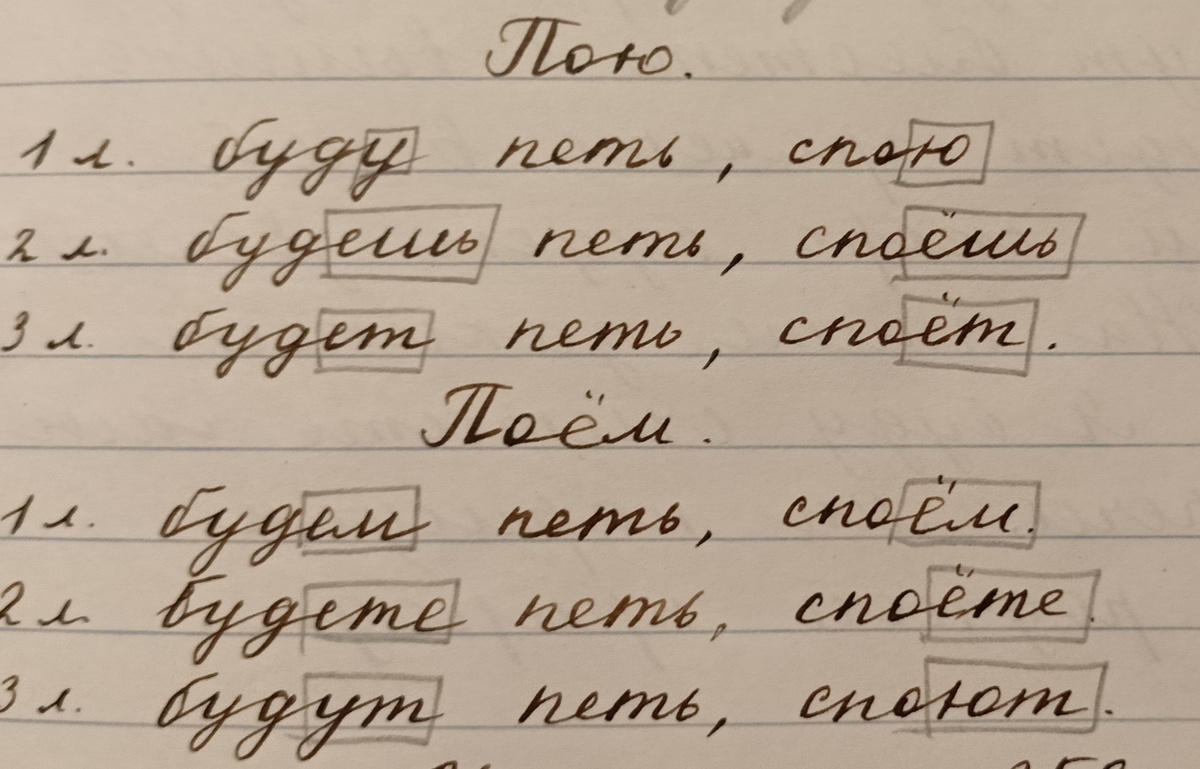 Пою.
1 л. буду петь, спою
2 л. будешь петь, споёшь
3 л. будет петь, споёт.
Поём.
1 л. будем петь, споём.
2 л. будете петь, споёте.
3 л. будут петь, споют.